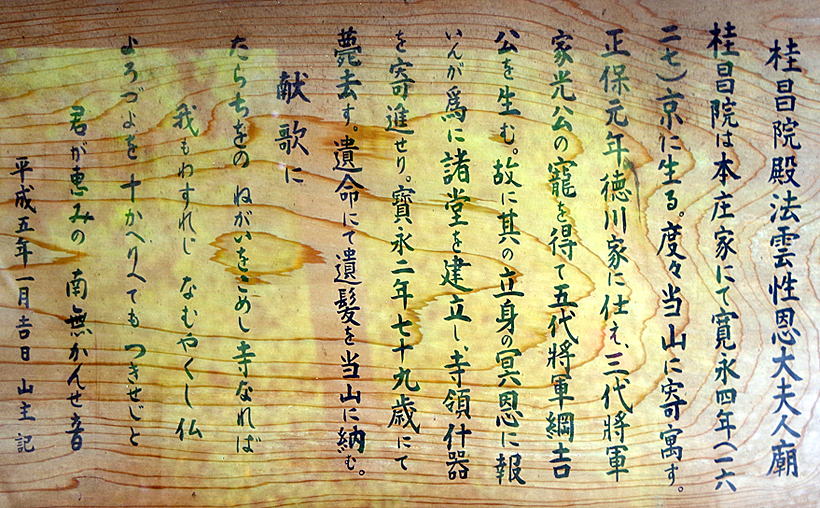 桂昌院殿法雲性恩大夫人廟
桂昌院は本庄家にて寛永四年(一六
二七)京に生る。度々当山に寄寓す。
正保元年、徳川家に仕え、三代将軍
家光公の寵を得て五代將軍綱吉
公を生む。故に其の立身の冥恩に報
いんが為に諸堂を建立し、寺領什器
を寄進せり。寶永二年七十九歳にて
薨去す。遺命にて遺髪を当山に納む。
献歌に
たらちをの ねがいをこめし寺なれば
我もわすれじ なむやくし仏
よろづよを 十かへりへても つきせじと
君が恵みの 南無かんせ音
平成五年一月吉日 山主記